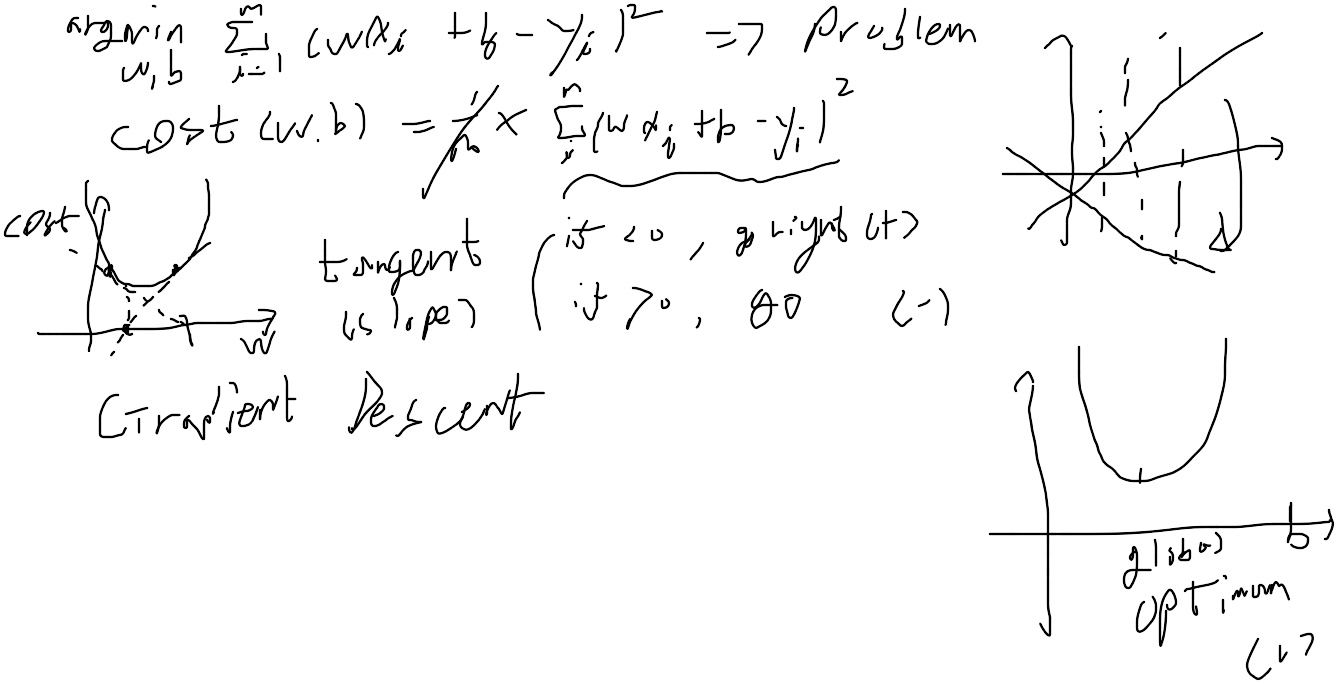 argmin w,b Σ i=1 n (wxi + b - yi)² => problem
cost (w.b) = 1/n × Σ i n (w xi + b - yi)²
cost
w
tangent
(slope)
if <0, go right (+)
if >0, go (-)
Gradient Descent
b
global
optimum